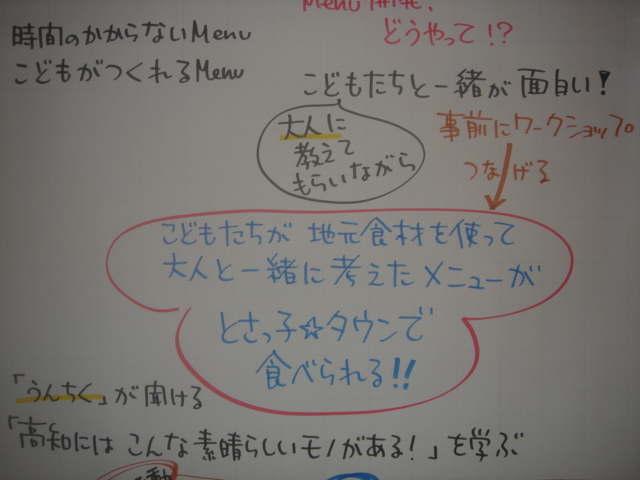 Menu開発、
どうやって!?
時間のかからないMenu
こどもがつくれるMenu
こどもたちと一緒が面白い!
大人に
教えて
もらいながら
事前にワークショップ
つなげる
こどもたちが 地元食材を使って
大人と一緒に考えたメニューが
とさっ子☆タウンで
食べられる!!
「うんちく」が聞ける
「高知には こんな素晴らしいモノがある!」を学ぶ